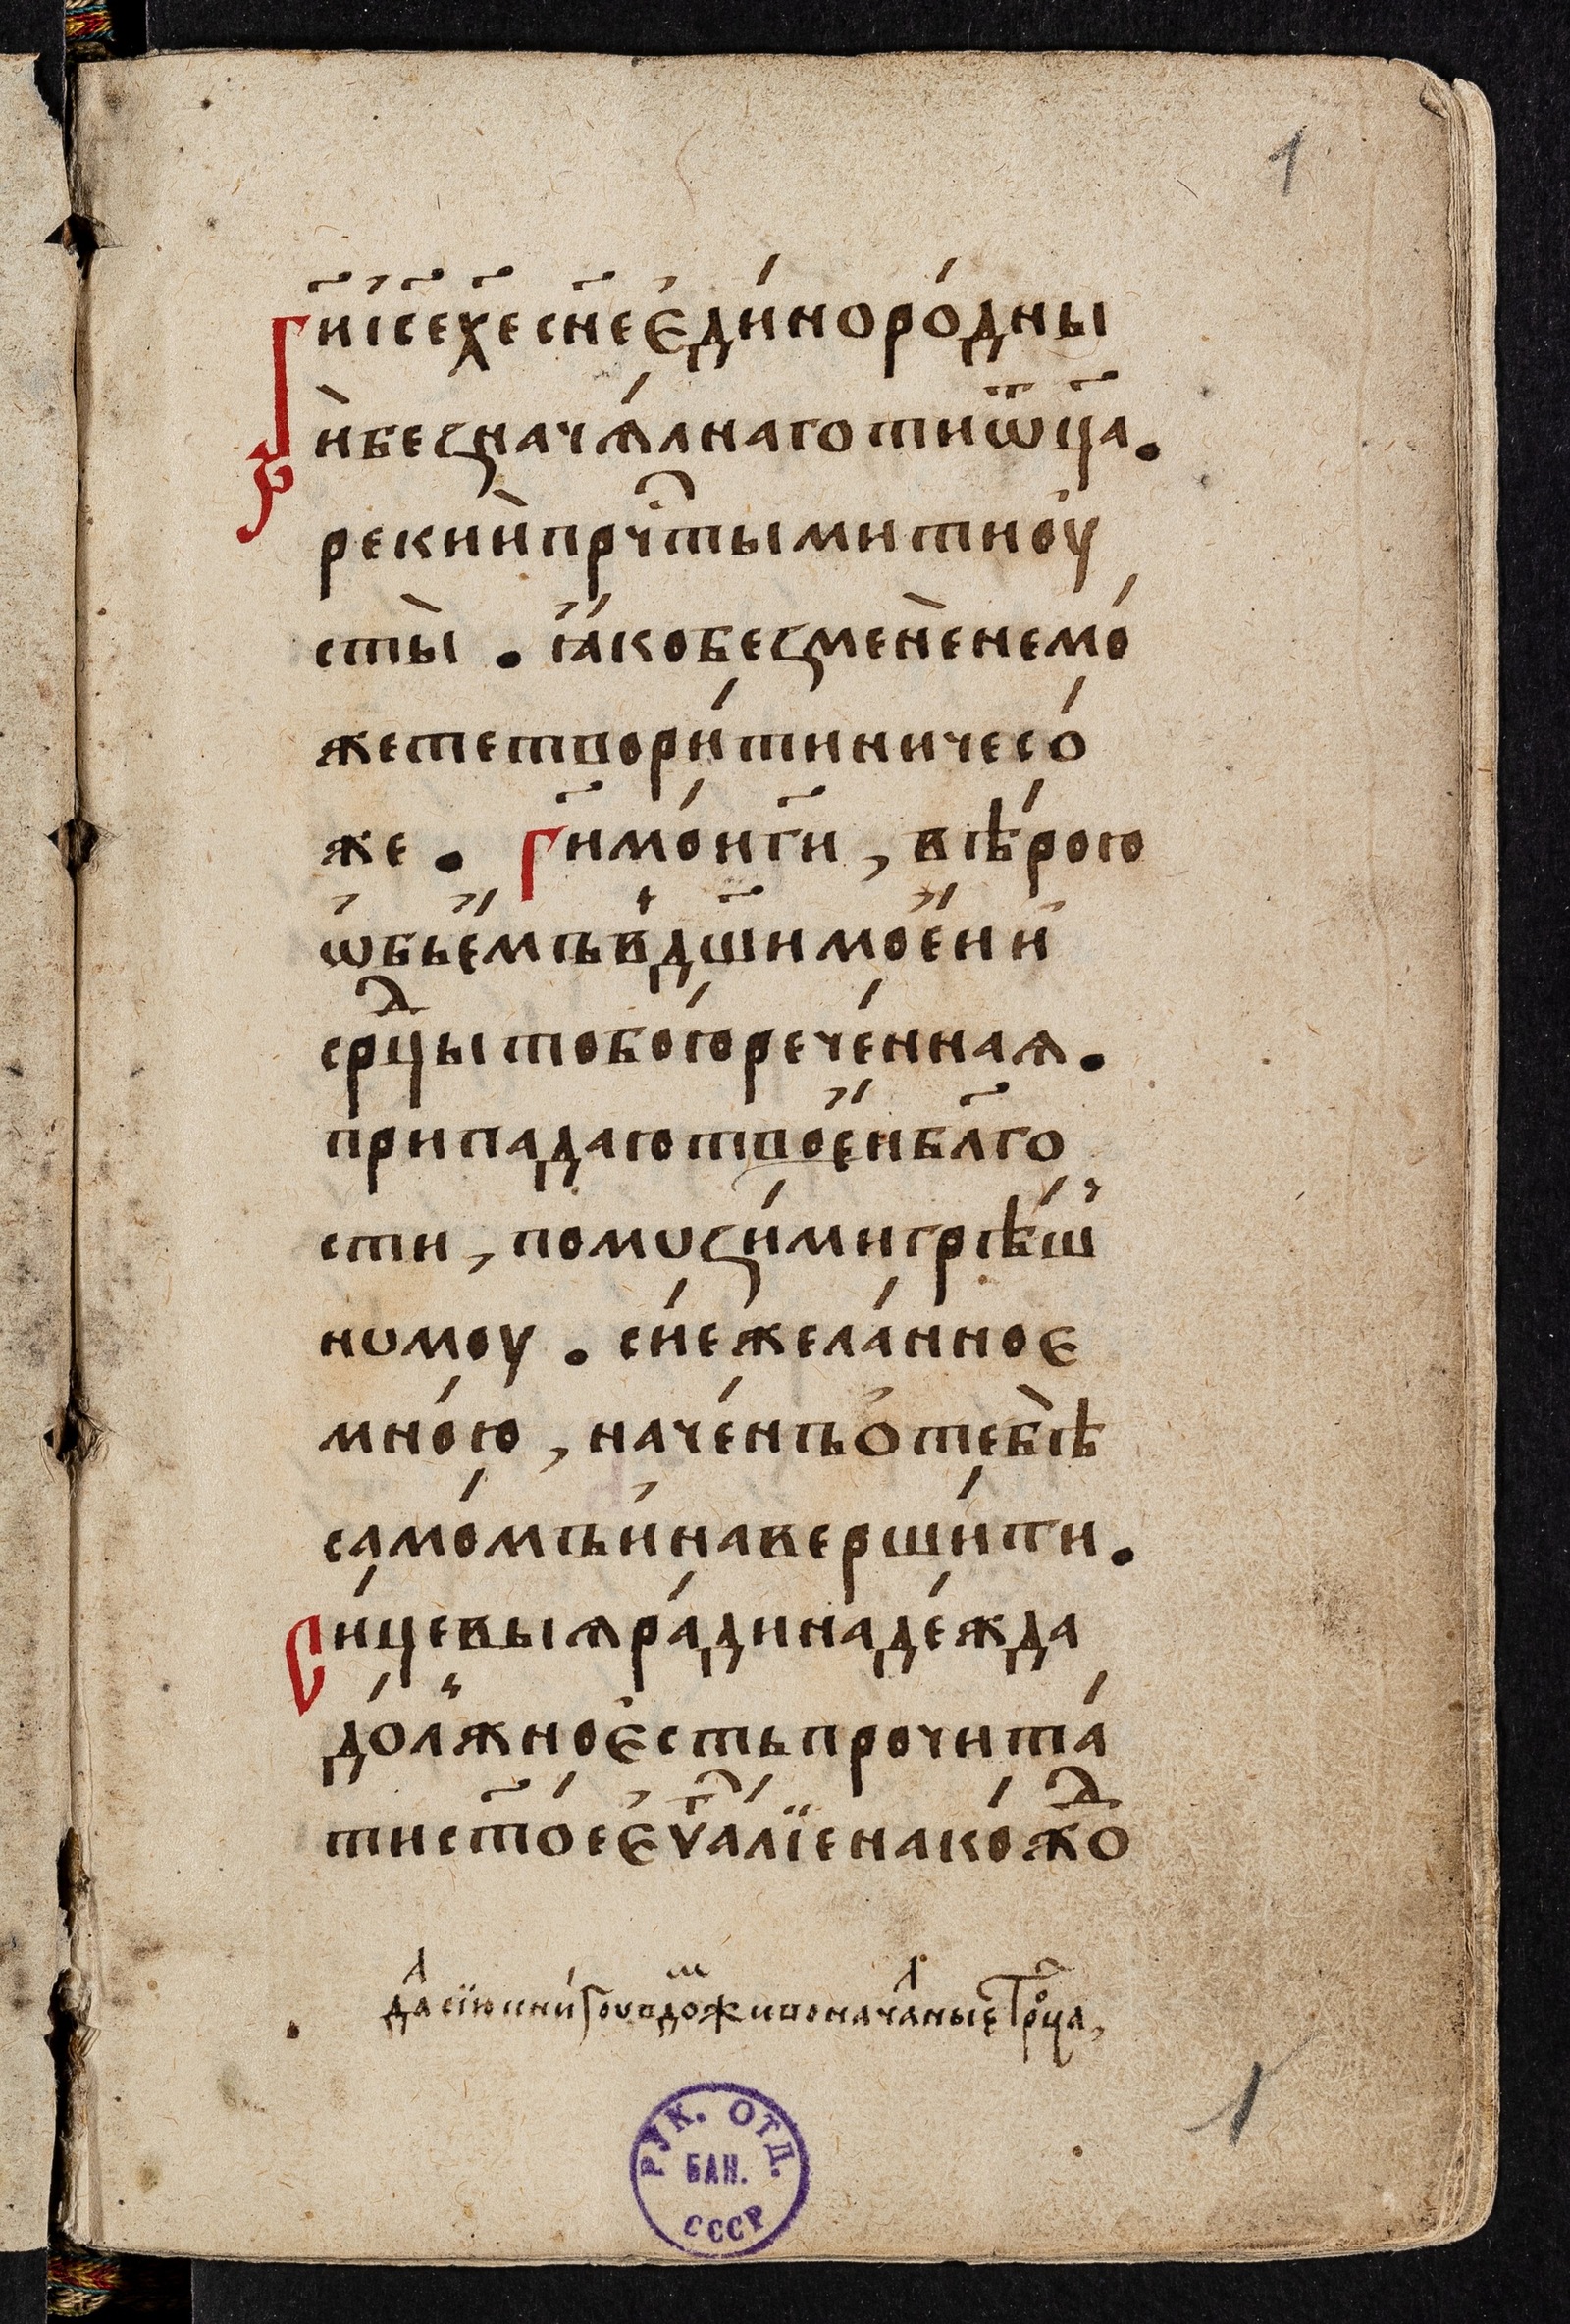 1
Гн҃и і҆се҃ хе҃ сн҃е є҆ди́норо́дны
и҆̀ без̾нача́лнаго ти ѿц҃а.
рекі́и прⷭ҇чтыми ти оу҆
сты̀. ꙗ҆́ко без̾ менѐ не мо́
жете твори́ти ничесо́
же. Ги҃ мо́и ги҃, вѣ́рою
ѡ҆бье́мъ в дш҃и мое́и и҆
срⷣцы тобо́ю рече́нная.
припадаю твое́и бл҃го
сти, помози́ ми грѣ́ш
номоу. сие́ жела́нное
мно́ю, наче́нъ о҆ тебѣ̀
само́мъ и҆ наверши́ти.
Си́цевыя ра́ди надежда
до́лжно є҆сть прочита́
ти ст҃о́е є҆ѵⷢ҇а́лїе на ко́жⷣо
даⷧ҇ сїю кни́гоу в доⷨ живоначаⷧ҇ные Трⷪ҇ца,
РУК. ОТД.
БАН.
СССР
1